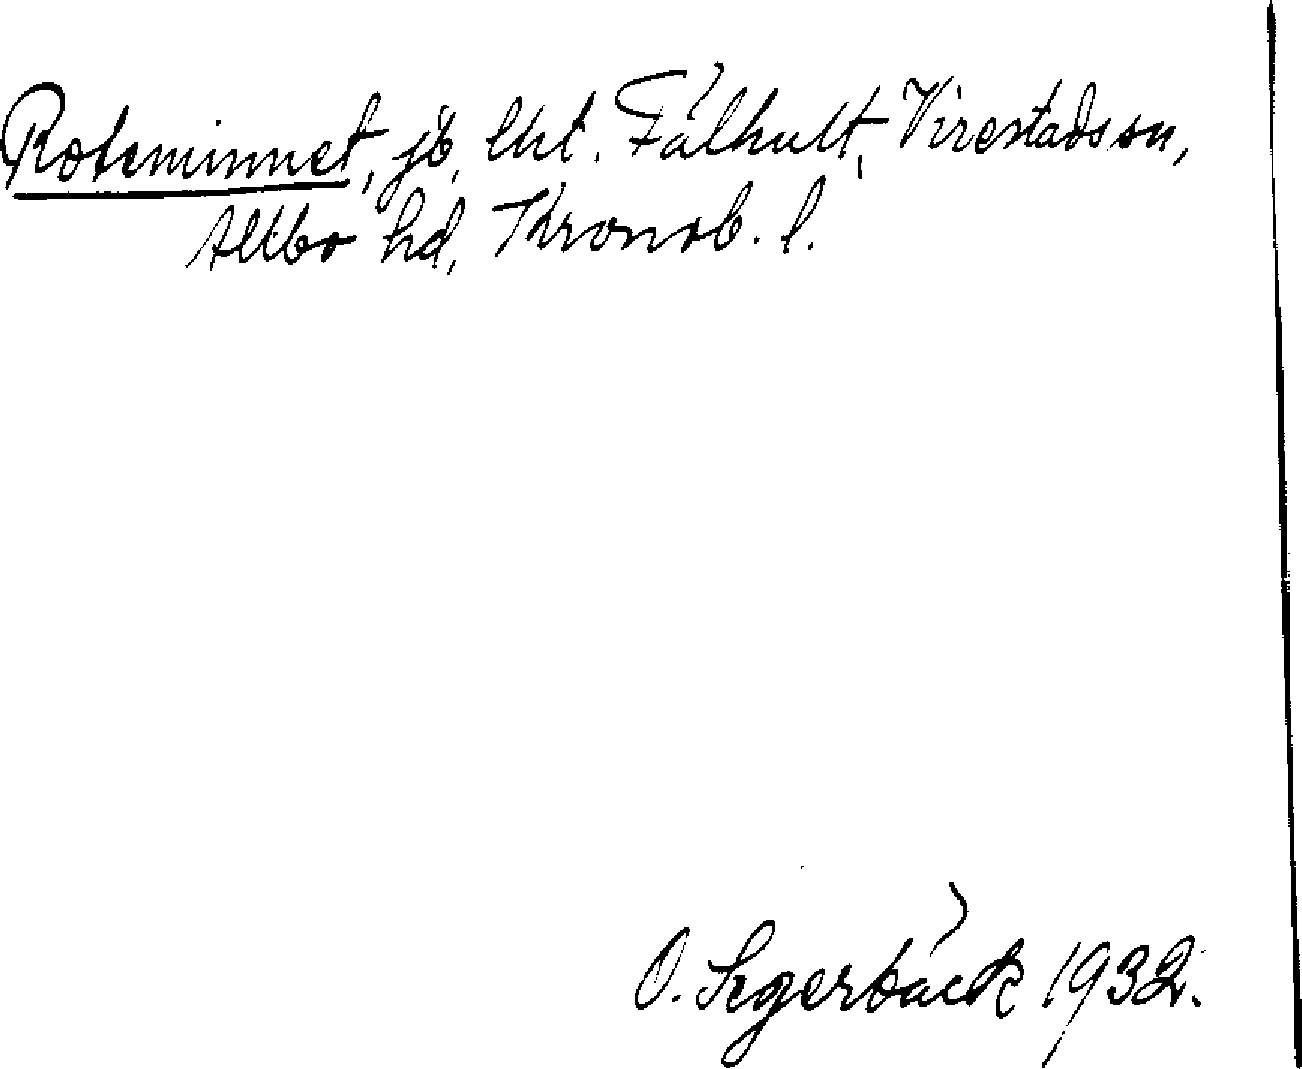 Roteminnet, jb, lht. Fälhult, Virestads sn,
Allbo hd, Kronob. l.
O. Segerbäck 1932.